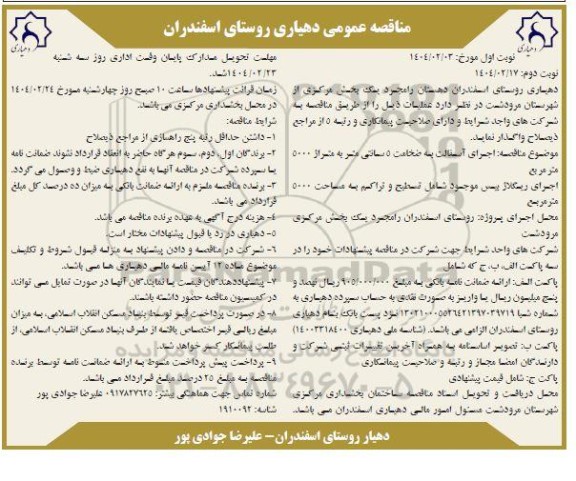 مناقصه عمومی دهیاری روستای اسفندران
نوبت اول مورخ: ۱۴۰۴/۰۲/۰۳
نوبت دوم: ۱۴۰۴/۰۲/۱۷
دهیاری روستای اسفندران دهستان رامجرد یک بخش مرکزی از
شهرستان مرودشت در نظر دارد عملیات ذیل را از طریق مناقصه به
شرکت های واجد شرایط و دارای صلاحیت پیمانکاری و رتبه ۵ از مراجع
ذیصلاح واگذار نماید.
موضوع مناقصه: اجرای آسفالت به ضخامت ۵ سانتی متر به متراژ ۵۰۰۰
متر مربع
اجرای ریگلاژ بیس موجود شامل تسطیح و تراکم به مساحت ۵۰۰۰
مترمربع
محل اجرای پروژه: روستای اسفندران رامجرد یک بخش مرکزی
مرودشت
شرکت های واجد شرایط جهت شرکت در مناقصه پیشنهادات خود را در
سه پاکت الف، ب، ج که شامل
پاکت الف: ارائه ضمانت نامه بانکی به مبلغ ۹۰۵/۰۰۰/۰۰۰ ریال نهصد و
پنج میلیون ریال یا واریز به صورت نقدی به حساب سپرده دهیاری به
شماره شبا نزد پست بانک بنام دهیاری
روستای اسفندران الزامی می باشد. (شناسه ملی دهیاری ۱۴۰۰۲۳۱۸۴۰۰)
پاکت ب: تصویر اساسنامه به همراه آخرین تغییرات ثبتی شرکت و
دارندگان امضا مجاز و رتبه و صلاحیت پیمانکاری
پاکت ج: شامل قیمت پیشنهادی
محل دریافت و تحویل اسناد مناقصه ساختمان بخشداری مرکزی
شهرستان مرودشت مسئول امور مالی دهیاری اسفندران می باشد.
مهلت تحویل مدارک پایان وقت اداری روز سه شنبه
۱۴۰۴/۰۲/۲۳ شد.
زمان قرائت پیشنهادها ساعت ۱۰ صبح روز چهارشنبه مورخ ۱۴۰۴/۰۲/۲۴
در محل بخشداری مرکزی می باشد.
شرایط مناقصه:
۱- داشتن حداقل رتبه پنج راهسازی از مراجع ذیصلاح
۲- برندگان اول، دوم، سوم هرگاه حاضر به انعقاد قرارداد نشوند ضمانت نامه
یا سپرده شرکت در مناقصه آنها به نفع دهیاری ضبط و وصول می گردد.
۳- برنده مناقصه ملزم به ارائه ضمانت بانکی به میزان ده درصد کل مبلغ
قرارداد می باشد.
۴- هزینه درج آگهی به عهده برنده مناقصه می باشد.
۵- دهیاری در رد یا قبول پیشنهادات مختار است.
۶- شرکت در مناقصه و دادن پیشنهاد به منزله قبول شروط و تکلیف
موضوع ماده ۱۲ آیین نامه مالی دهیاری ها می باشد.
۷- پیشنهاددهندگان قیمت یا نمایندگان آنها در صورت تمایل می توانند
در کمیسیون مناقصه حضور داشته باشند.
۸- در صورت پرداخت قیر توسط بنیاد مسکن انقلاب اسلامی، به میزان
مبلغ ریالی قیر اختصاص یافته از طرف بنیاد مسکن انقلاب اسلامی، از
طلب پیمانکار کسر خواهد شد.
۹- پرداخت پیش پرداخت منوط به ارائه ضمانت نامه توسط برنده
مناقصه به مبلغ ۲۵ درصد مبلغ قرارداد می باشد.
شماره تماس جهت هماهنگی بیشتر: ۰۹۱۷۸۲۷۶۲۵ علیرضا جوادی پور
شناسه: ۱۹۱۰۰۹۲
دهیار روستای اسفندران- علیرضا جوادی پور